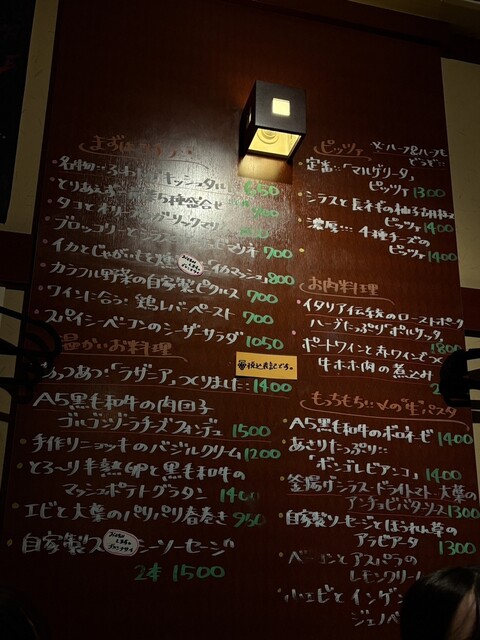 まずは
名物 キッシュタルト 650
とりあえず 5種盛合せ
タコとオリーブ ガーリックマリネ
ブロッコリーと マリネ 700
イカとじゃがいも 「イカマッシュ」 800
カラフル野菜の自家製ピクルス 700
ワインに合う! 鶏レバーペースト 700
スパイシーベーコンのシーザーサラダ 1050
温かいお料理
あっつあつ!「ラザニア」つくりました!! 1400
A5黒毛和牛の肉団子
ゴルゴンゾーラチーズフォンデュ 1500
手作りニョッキのバジルクリーム 1200
とろ〜り半熟卵と黒毛和牛の
マッシュポテトグラタン 1400
エビと大葉のパリパリ春巻き 950
自家製ス シーソーセージ
2本 1500
税込表記です。
ピッツァ
定番!!「マルゲリータ」
ピッツァ 1300
シラスと長ネギの柚子胡椒
ピッツァ 1400
濃厚!!! 4種チーズの
ピッツァ 1400
お肉料理
イタリア伝統のローストポーク
ハーブたっぷり「ポルケッタ」
1800
ポートワインと赤ワインで
牛ホホ肉の煮込み
もちもち!! の生パスタ
A5黒毛和牛のボロネーゼ 1400
あさりたっぷり!!
「ボンゴレビアンコ」 1400
釜揚げシラス・ドライトマト・大葉の
アンチョビバターソース 1300
自家製ソーセージとほうれん草の
アラビアータ 1300
ベーコンとアスパラの
レモンクリーム
小エビとインゲン
ジェノベ